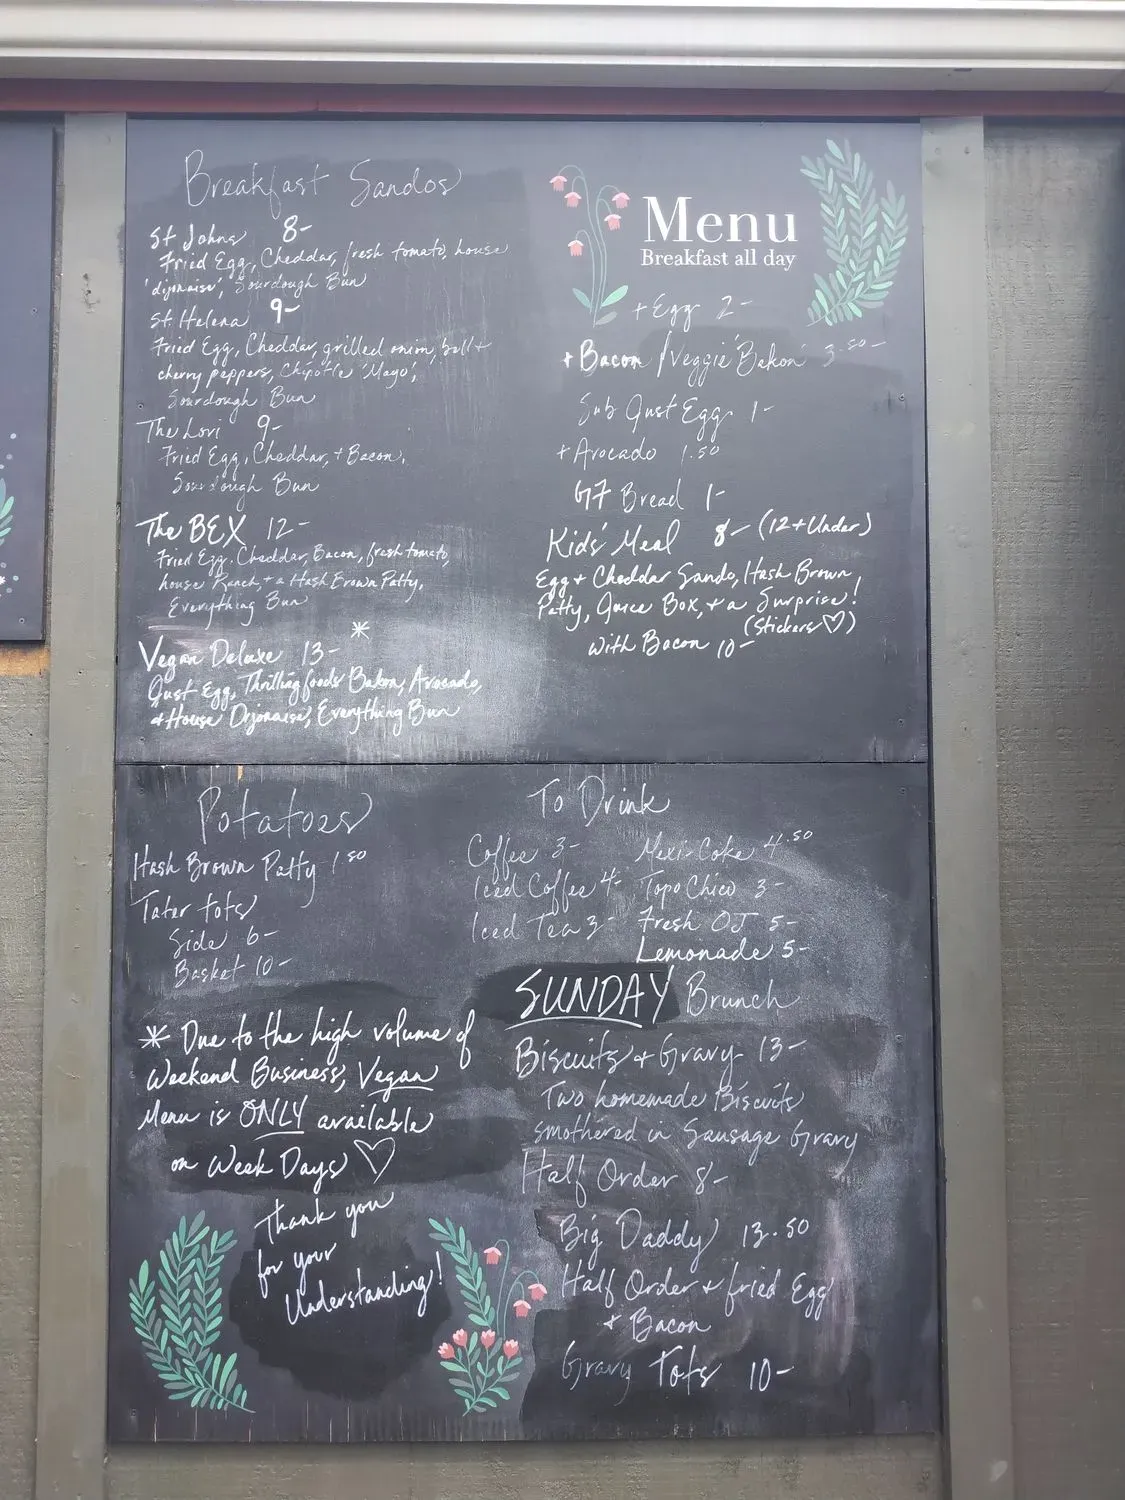 Breakfast Sandos
St Johns 8-
Fried Egg, Cheddar, fresh tomato, house
'dijonaise', Sourdough Bun
St. Helena 9-
Fried Egg, Cheddar, grilled onion, bell +
cherry peppers, Chipotle 'Mayo',
Sourdough Bun
The Lori 9-
Fried Egg, Cheddar, + Bacon,
Sourdough Bun
The BEX 12-
Fried Egg, Cheddar, Bacon, fresh tomato,
house Ranch, + a Hash Brown Patty,
Everything Bun
*
Vegan Deluxe 13-
Just Egg, Thrilling foods Bakon, Avocado,
+ House Dijonaise, Everything Bun
Menu
Breakfast all day
+ Egg 2-
+ Bacon / Veggie 'Bakon' 3.50-
Sub Just Egg 1-
+ Avocado 1.50
GF Bread 1-
Kids' Meal 8- (12 + Under)
Egg + Cheddar Sando, Hash Brown
Patty, Juice Box, + a Surprise!
(Stickers♡)
with Bacon 10-
Potatoes
Hash Brown Patty 1.50
Tater tots
Side 6-
Basket 10-
* Due to the high volume of
Weekend Business, Vegan
Menu is ONLY available
on Week Days ♡
Thank you
for your
Understanding!
To Drink
Coffee 3-
Iced Coffee 4-
Iced Tea 3-
Mexi-Coke 4.50
Topo Chico 3-
Fresh OJ 5-
Lemonade 5-
SUNDAY Brunch
Biscuits + Gravy 13-
Two homemade Biscuits
smothered in Sausage Gravy
Half Order 8-
Big Daddy 13.50
Half Order + fried Egg
+ Bacon
Gravy Tots 10-